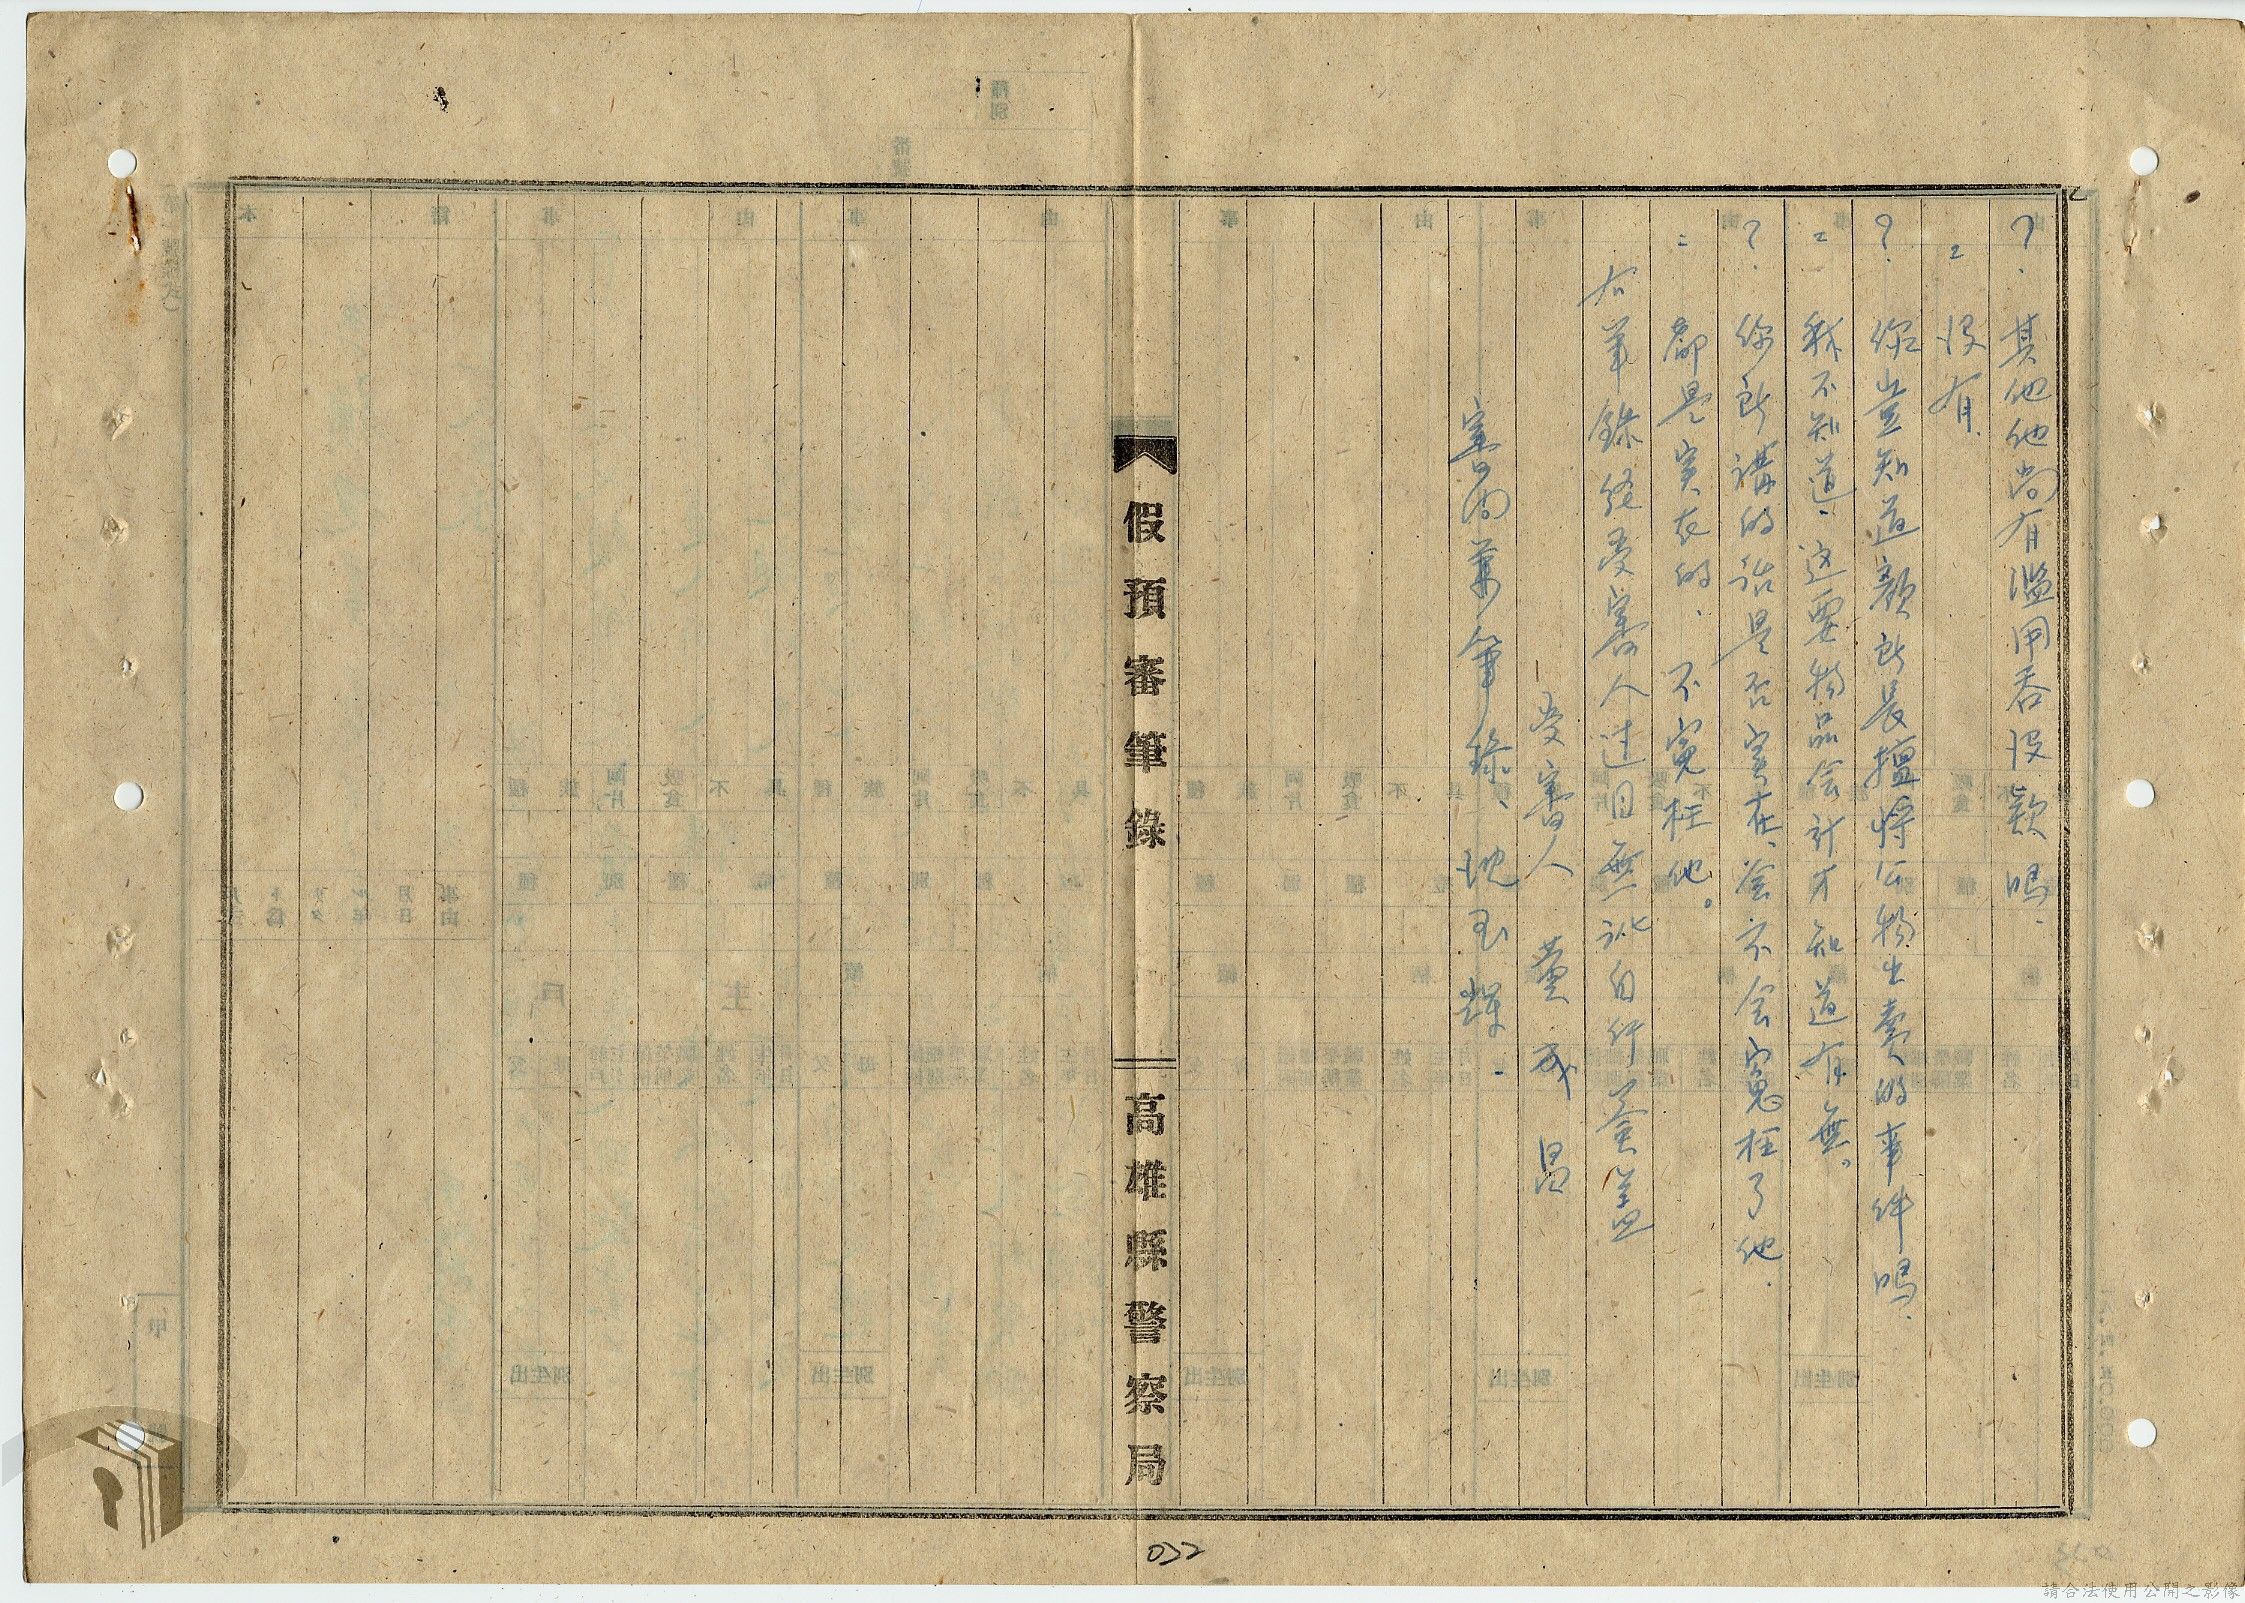 ？其他他尚有濫用吞沒款嗎．
＝沒有．
？你豈知道顏所長擅將公物出賣的事件嗎．
＝我不知道．这要物品会計才知道有無。
？你所講的話是否実在、会不会冤枉了他．
＝都是実在的．不冤枉他。
右筆錄經受審人过目無訛自行簽蓋
受審人 黃成昌
審問兼筆錄
假預審筆錄
高雄縣警察局
022
請合法使用公開之影像